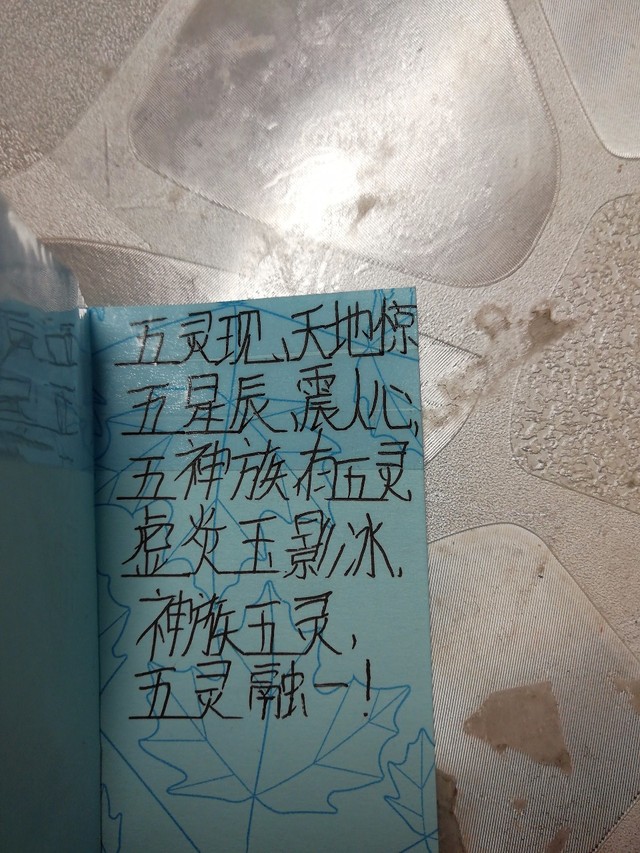 五灵现、天地惊
五星辰、震人心,
五神族有五灵
虚炎玉影冰,
神族五灵,
五灵融一!